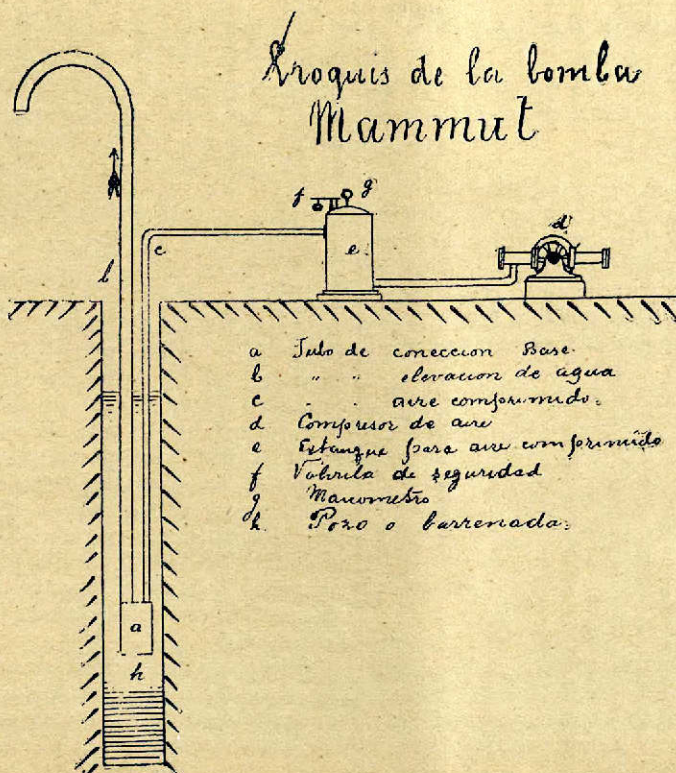 Kroquis de la bomba
Mammut
f
g
c
e
d
b
a Tubo de coneccion Base.
b " " elevacion de agua
c " " aire comprimido.
d Compresor de aire
e Estanque para aire comprimido
f Valvula de seguridad
g Manometro
h Pozo o barrenada.
a
h